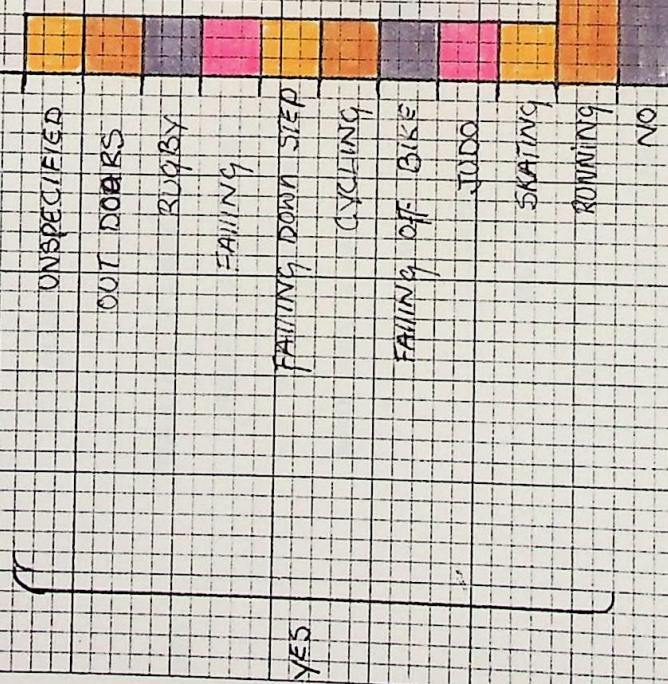 UNSPECIFIED
OUT DOORS
RUGBY
FALLING
FALLING DOWN STEP
CYCLING
FALLING OFF BIKE
JUDO
SKATING
RUNNING
NO
YES